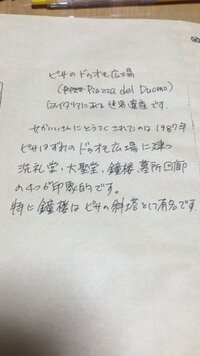 ピサのドゥオモ広場
(Piazza del Duomo)
はイタリアにある世界遺産です
せかいいさんにとうろくされたのは1987年
ピサはずれのドゥオモ広場に建つ
洗礼堂、大聖堂、鐘楼、墓所回廊
の4つが印象的です。
特に鐘楼はピサの斜塔として有名です